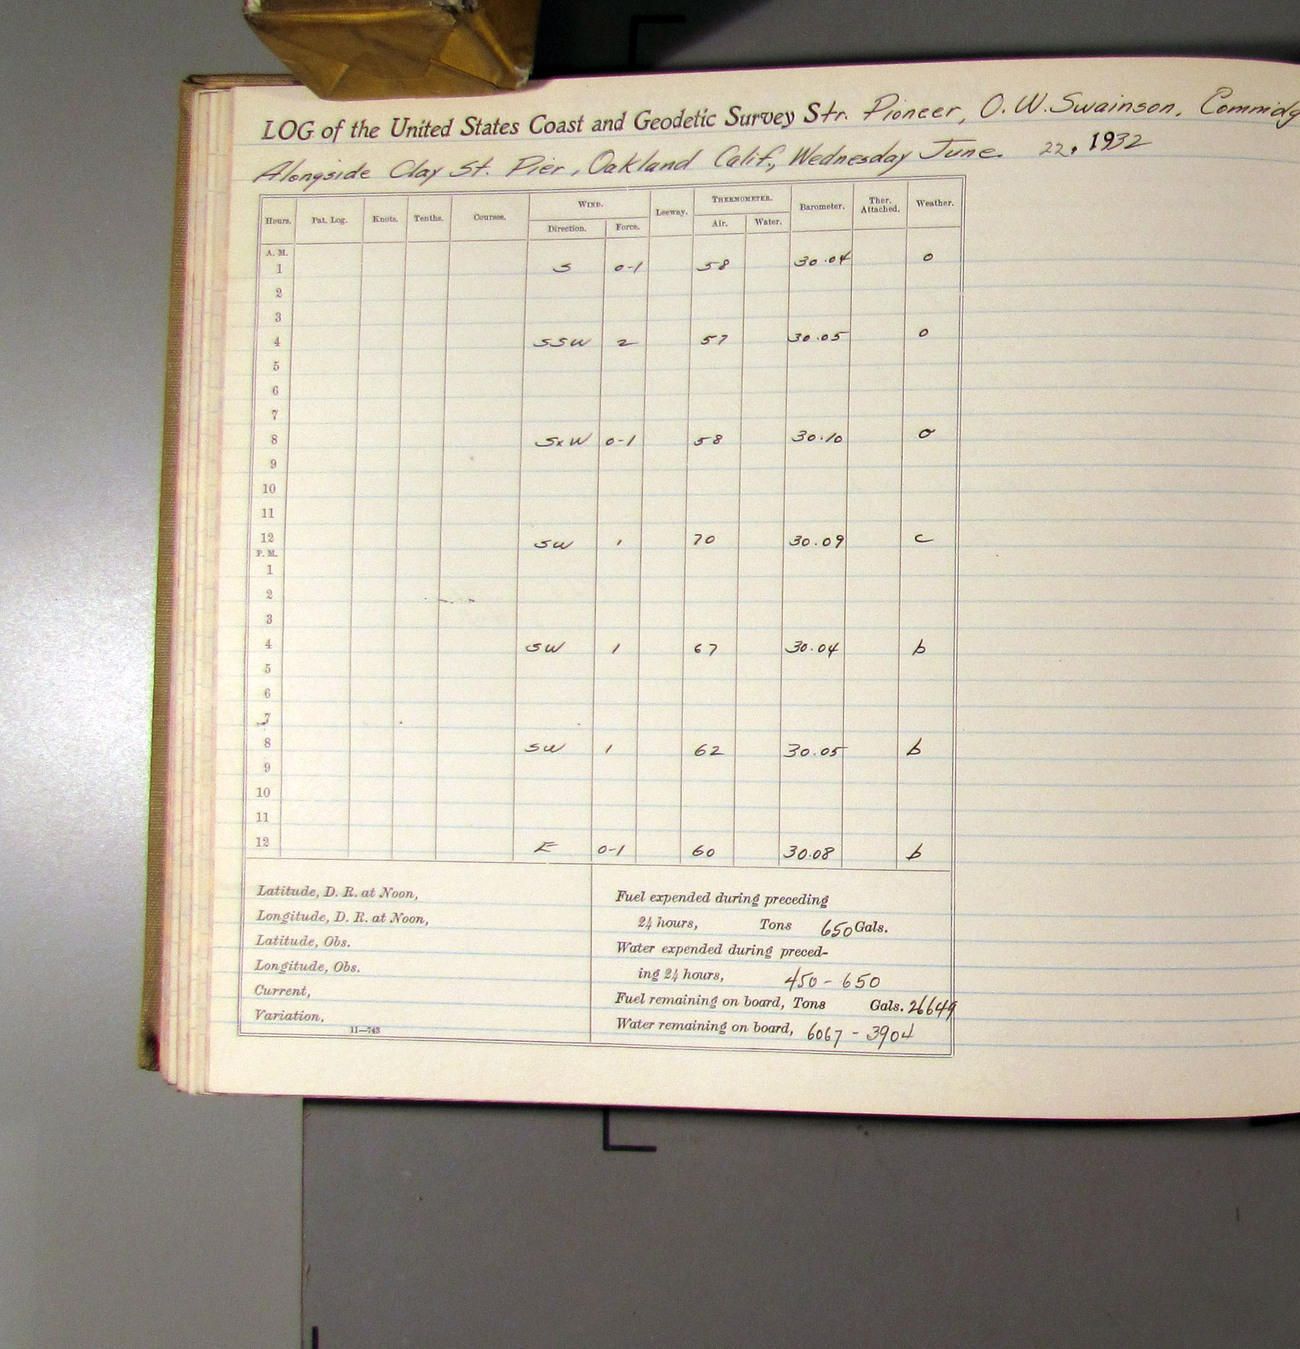 LOG of the United States Coast and Geodetic Survey Str. Pioneer, O. W. Swainson, Commdg
Alongside Clay St. Pier, Oakland Calif., Wednesday June. 22, 1932
Hours. Pat. Log. Knots. Tenths. Courses. WIND. Leeway. THERMOMETER. Barometer. Ther. Attached. Weather.
Direction. Force. Air. Water.
A. M.
1 S 0-1 58 30.04 o
2
3
4 SSW 2 57 30.05 o
5
6
7
8 SxW 0-1 58 30.10 o
9
10
11
12 SW 1 70 30.09 c
P. M.
1
2
3
4 SW 1 67 30.04 b
5
6
7
8 SW 1 62 30.05 b
9
10
11
12 E 0-1 60 30.08 b
Latitude, D. R. at Noon,
Longitude, D. R. at Noon,
Latitude, Obs.
Longitude, Obs.
Current,
Variation,
11—743
Fuel expended during preceding
24 hours, Tons 650 Gals.
Water expended during preced-
ing 24 hours, 450 - 650
Fuel remaining on board, Tons Gals. 26649
Water remaining on board, 6067 - 3904